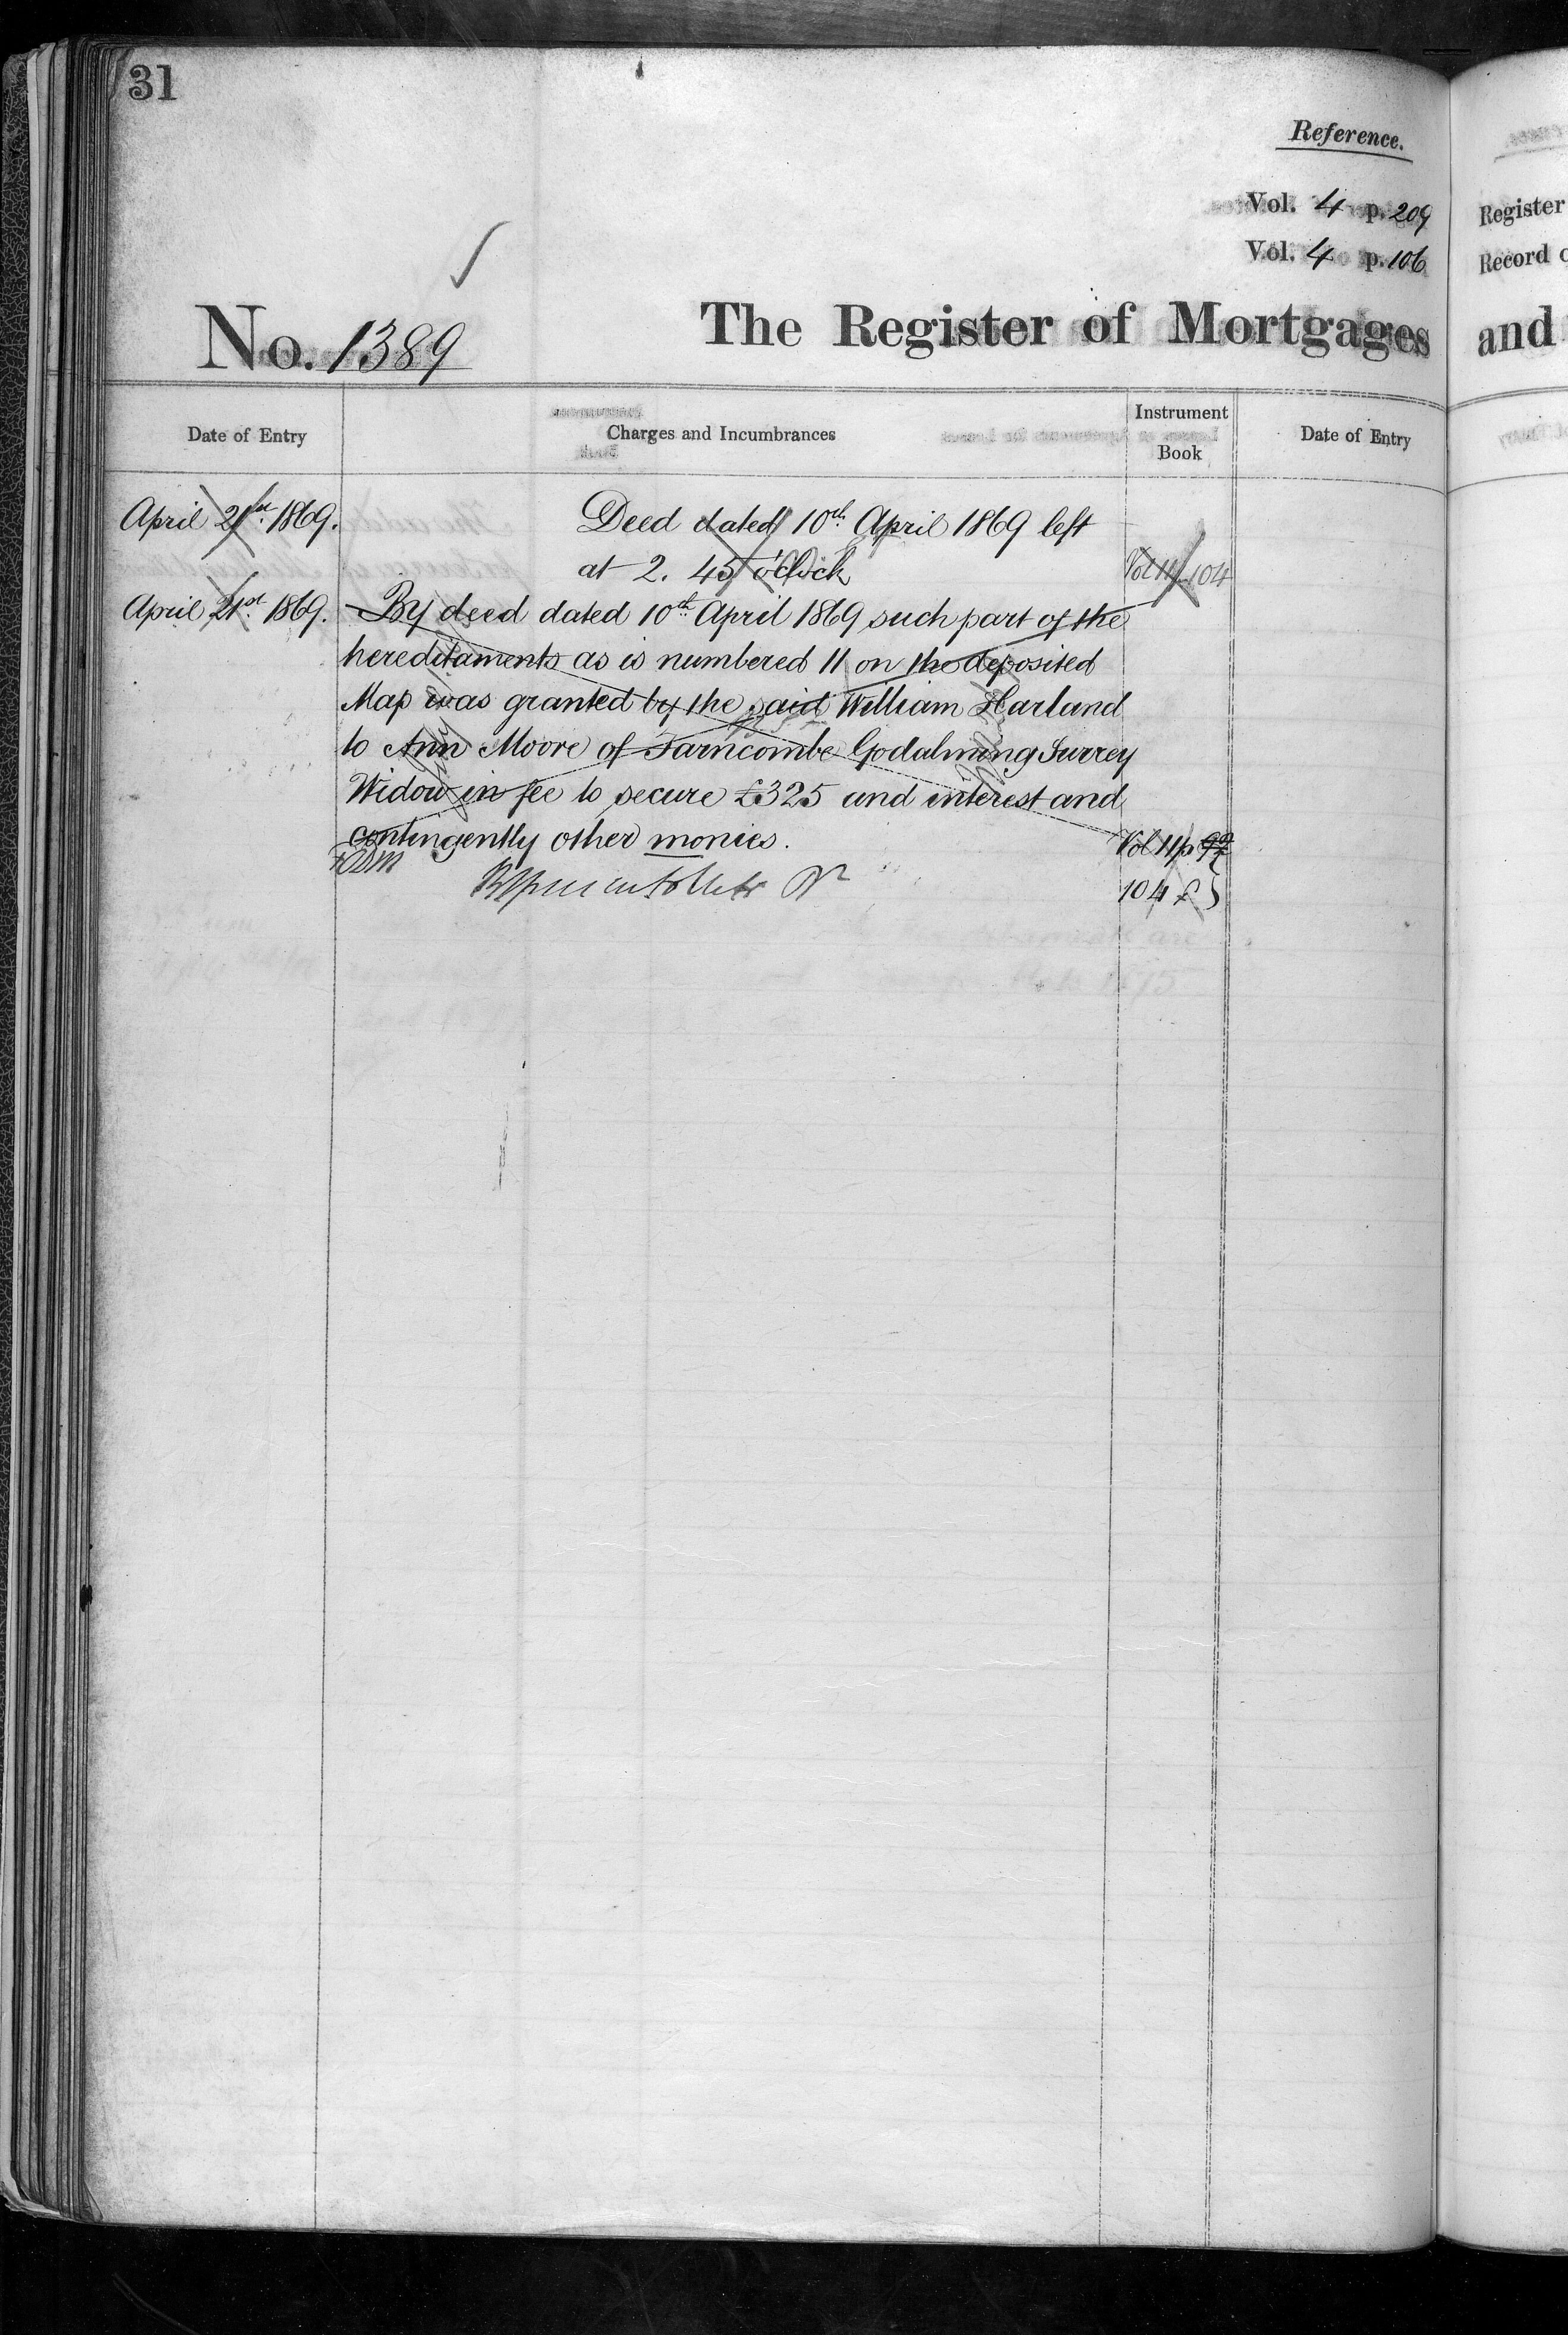 31
Reference.
Vol. 4 p. 209
Vol. 4 p. 106
Register
Record
No. 1389
The Register of Mortgages
and
Date of Entry
Charges and Incumbrances
Instrument
Book
Date of Entry
April 21st. 1869.
Deed dated 10th. April 1869 left
at 2. 45 o'clock
Vol 11 104
April 21st. 1869.
By deed dated 10th April 1869 such part of the
hereditaments as is numbered 11 on the deposited
Map was granted by the said William Harland
to Ann Moore of Farncombe Godalming Surrey
Widow in fee to secure £325 and interest and
contingently other monies.
Vol 11 p
104